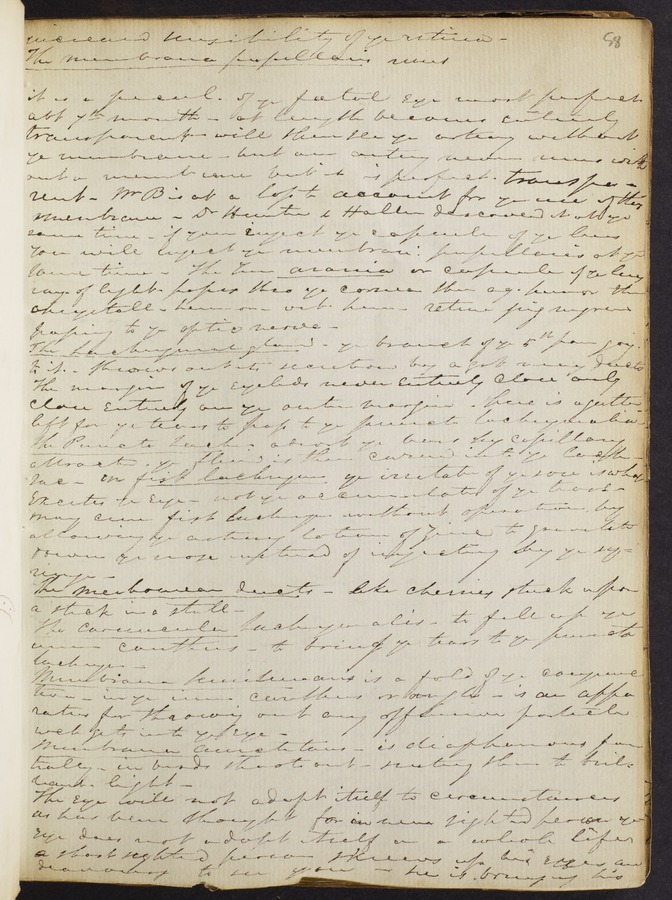 58
increased sensibility of ye retina -
The membrana pupillaris runs
it is a pecul. of ye foetal Eye most perfect
abt 7th month - at length becomes entirely
transparent - will then see ye artery without
ye membrane - but an artery never runs with
out a membrane but it is perfect. transpa-
rent. Mr B is at a loss to account for ye use of this
membrane - Dr Hunter & Haller discovered it at ye
same time - if you inject ye capsule of ye lens
you will inject ye membran: pupillaris at ye
same time - The aranea or capsule of ye lens
rays of light passes thro ye cornea then aq. humor then
chrystall. humor vit. hum - retina pig nigrum
passing to ye optic nerve -
The Lachrymal gland - ye branch of ye 5th pair
to it - throws out its secretion by ducts
The margin of ye Eyelids never Entirely close only
close Entirely on ye outer margin - there is a gutter
left for ye tears to pass to ye puncta lachrymalia -
The Puncta Lach: absorb ye tears by capillary
attract. ye fluid is then carried into ye Lach
sac - in fist. lachrym ye irritat. of ye is what
Excites ye Eye - not ye accumulat. of ye tears -
may cure fist Lachrym without operation by
allowing ye lotion of Zinc to gravitate
down ye nose instead of injecting by ye syr-
inge -
The Meibomean ducts - like cherries stuck upon
a stick in a stall -
The Caruncula Lachrymalis - to fill up ye
inner canthus - to bring ye tears to ye puncta
lachrym -
Membrana Semilunaris is a fold of ye conjunc
tiva - in ye inner canthus or angle - is an appa
ratus for throwing out any offensive particle
wch gets into ye Eye -
Membrana nictitans - is diaphanous
in birds
light -
The Eye will not adapt itself to circumstances
as has been thought for in near sighted person ye
Eye does not adapt itself in a whole life
a short sighted person skrews up his Eyes in
to see you - he is bringing his